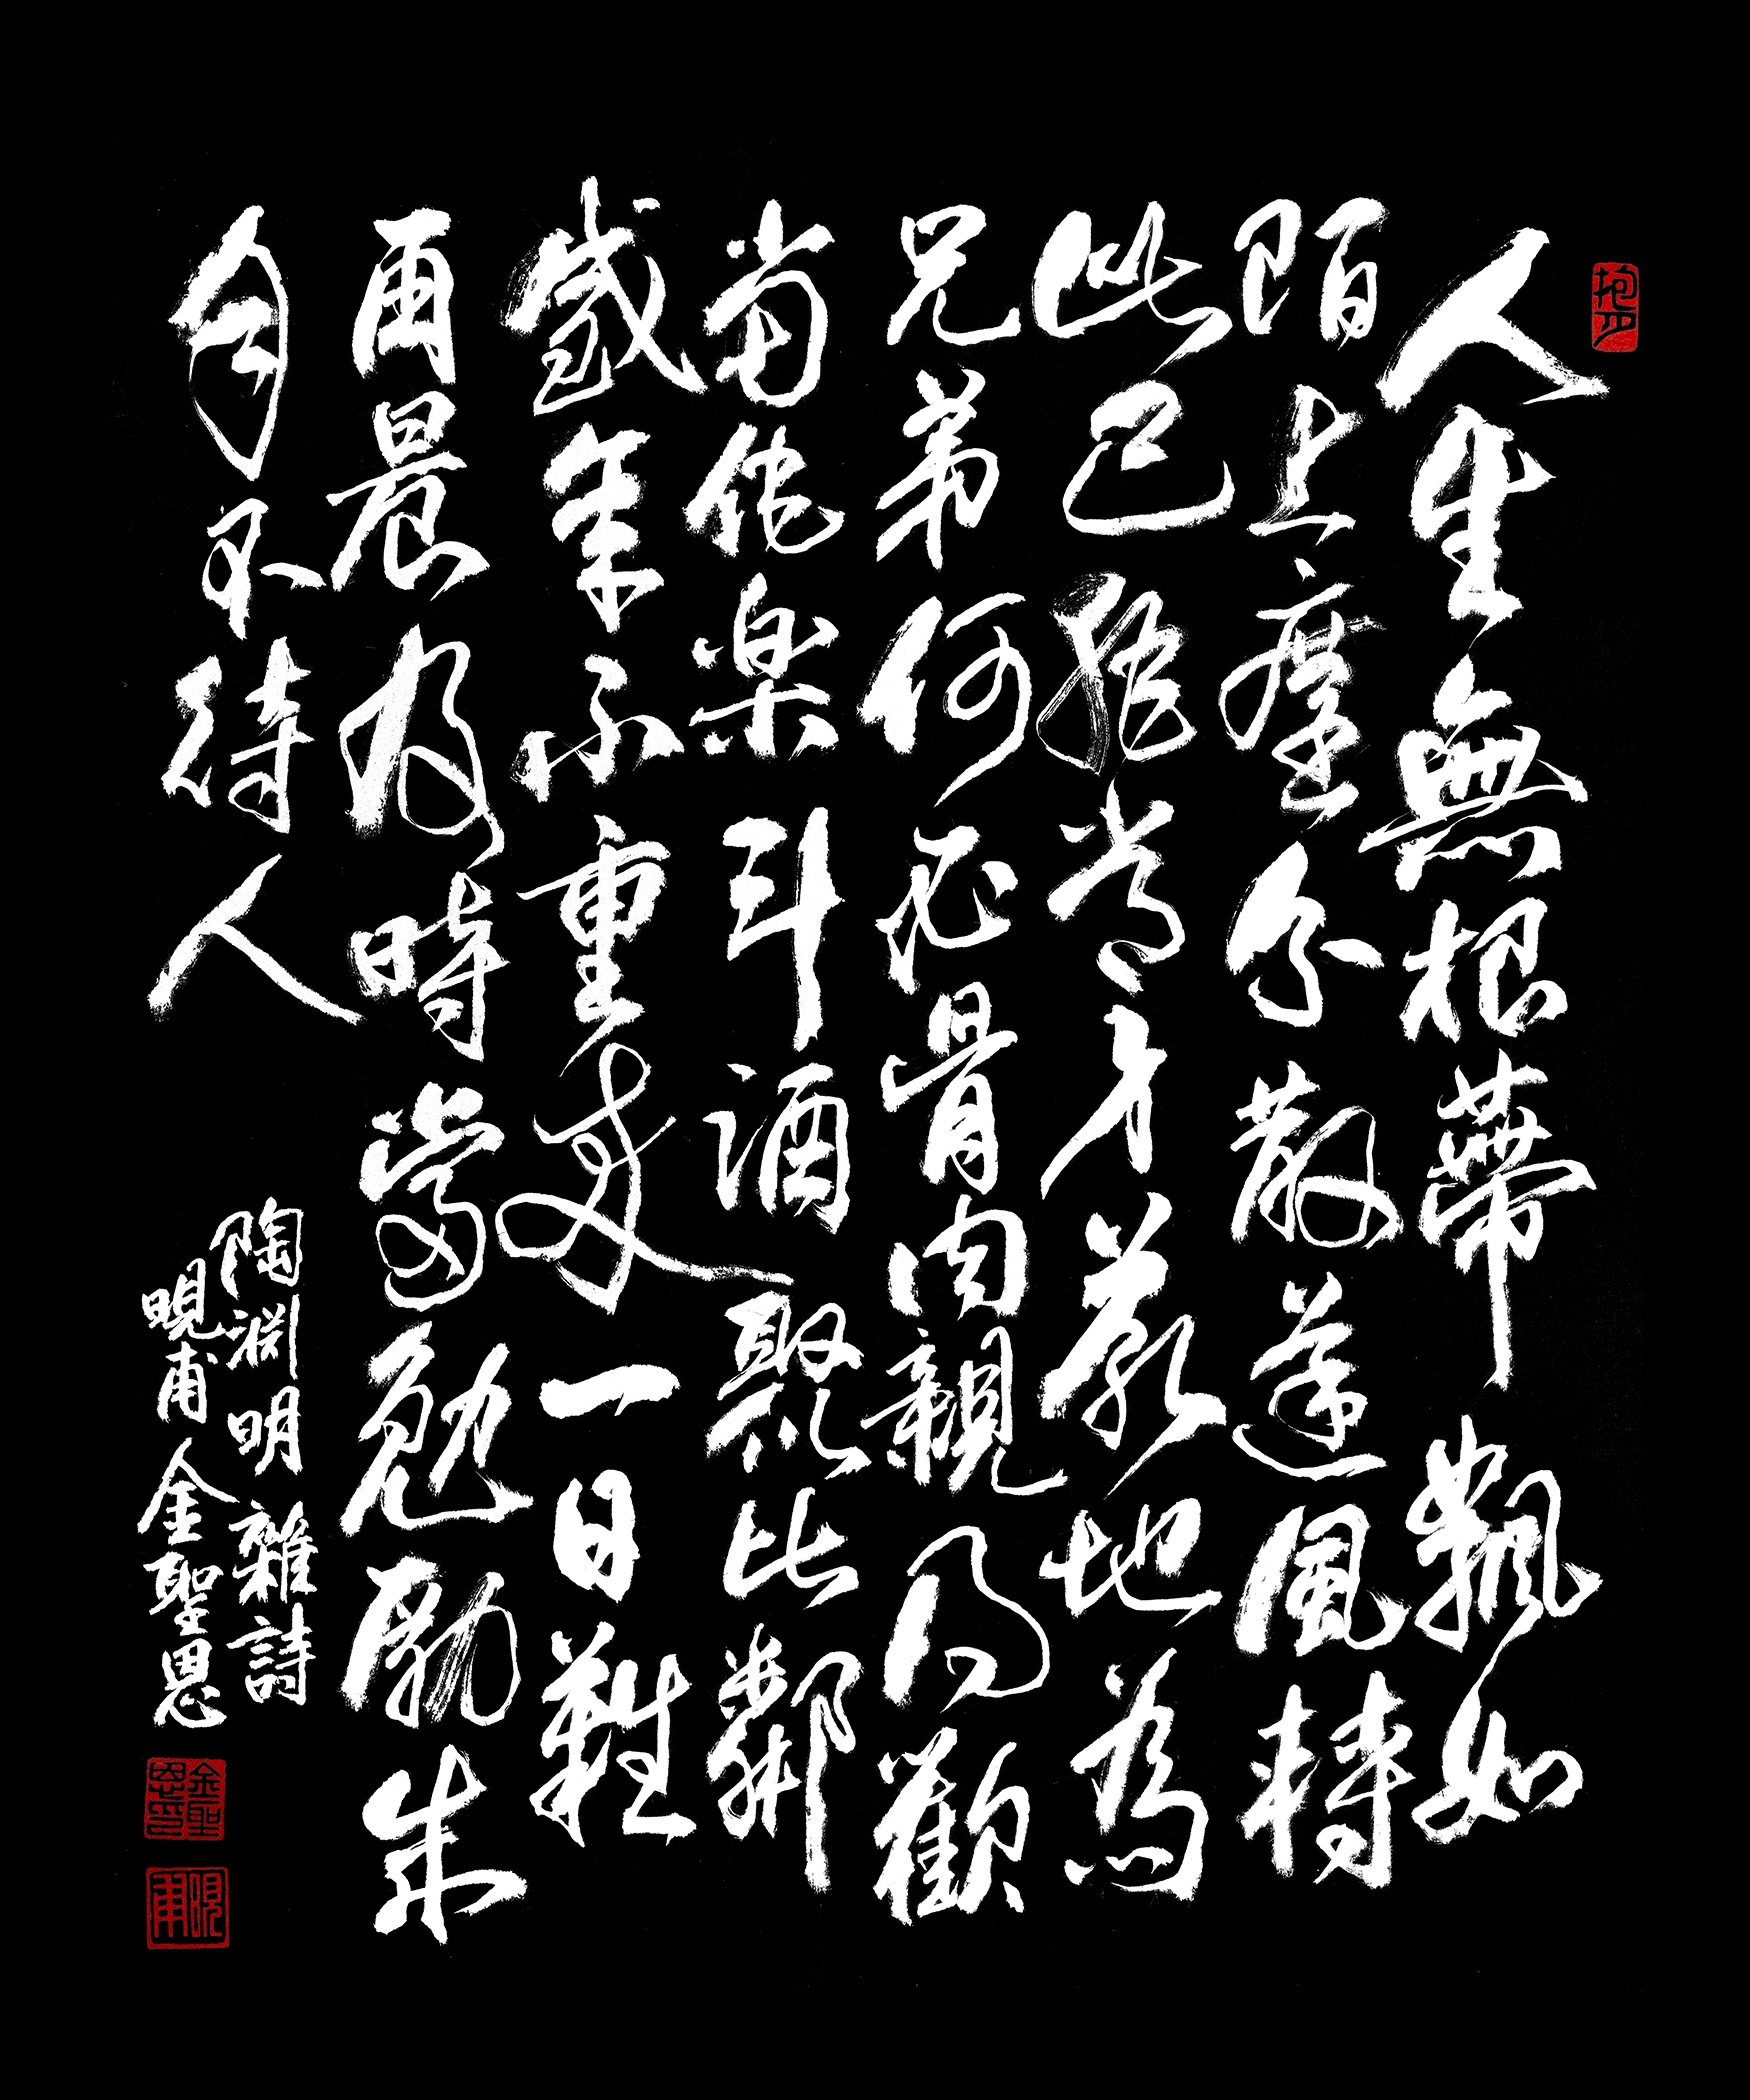 人生無根蒂飄如
陌上塵分散逐風轉
此已非常身落地為
兄弟何必骨肉親得歡
当作楽斗酒聚比鄰
盛年不重来一日難
再晨及時當勉励歲
月不待人
陶渊明 雜詩
晛甫 金聖恩
金聖恩印
晛甫